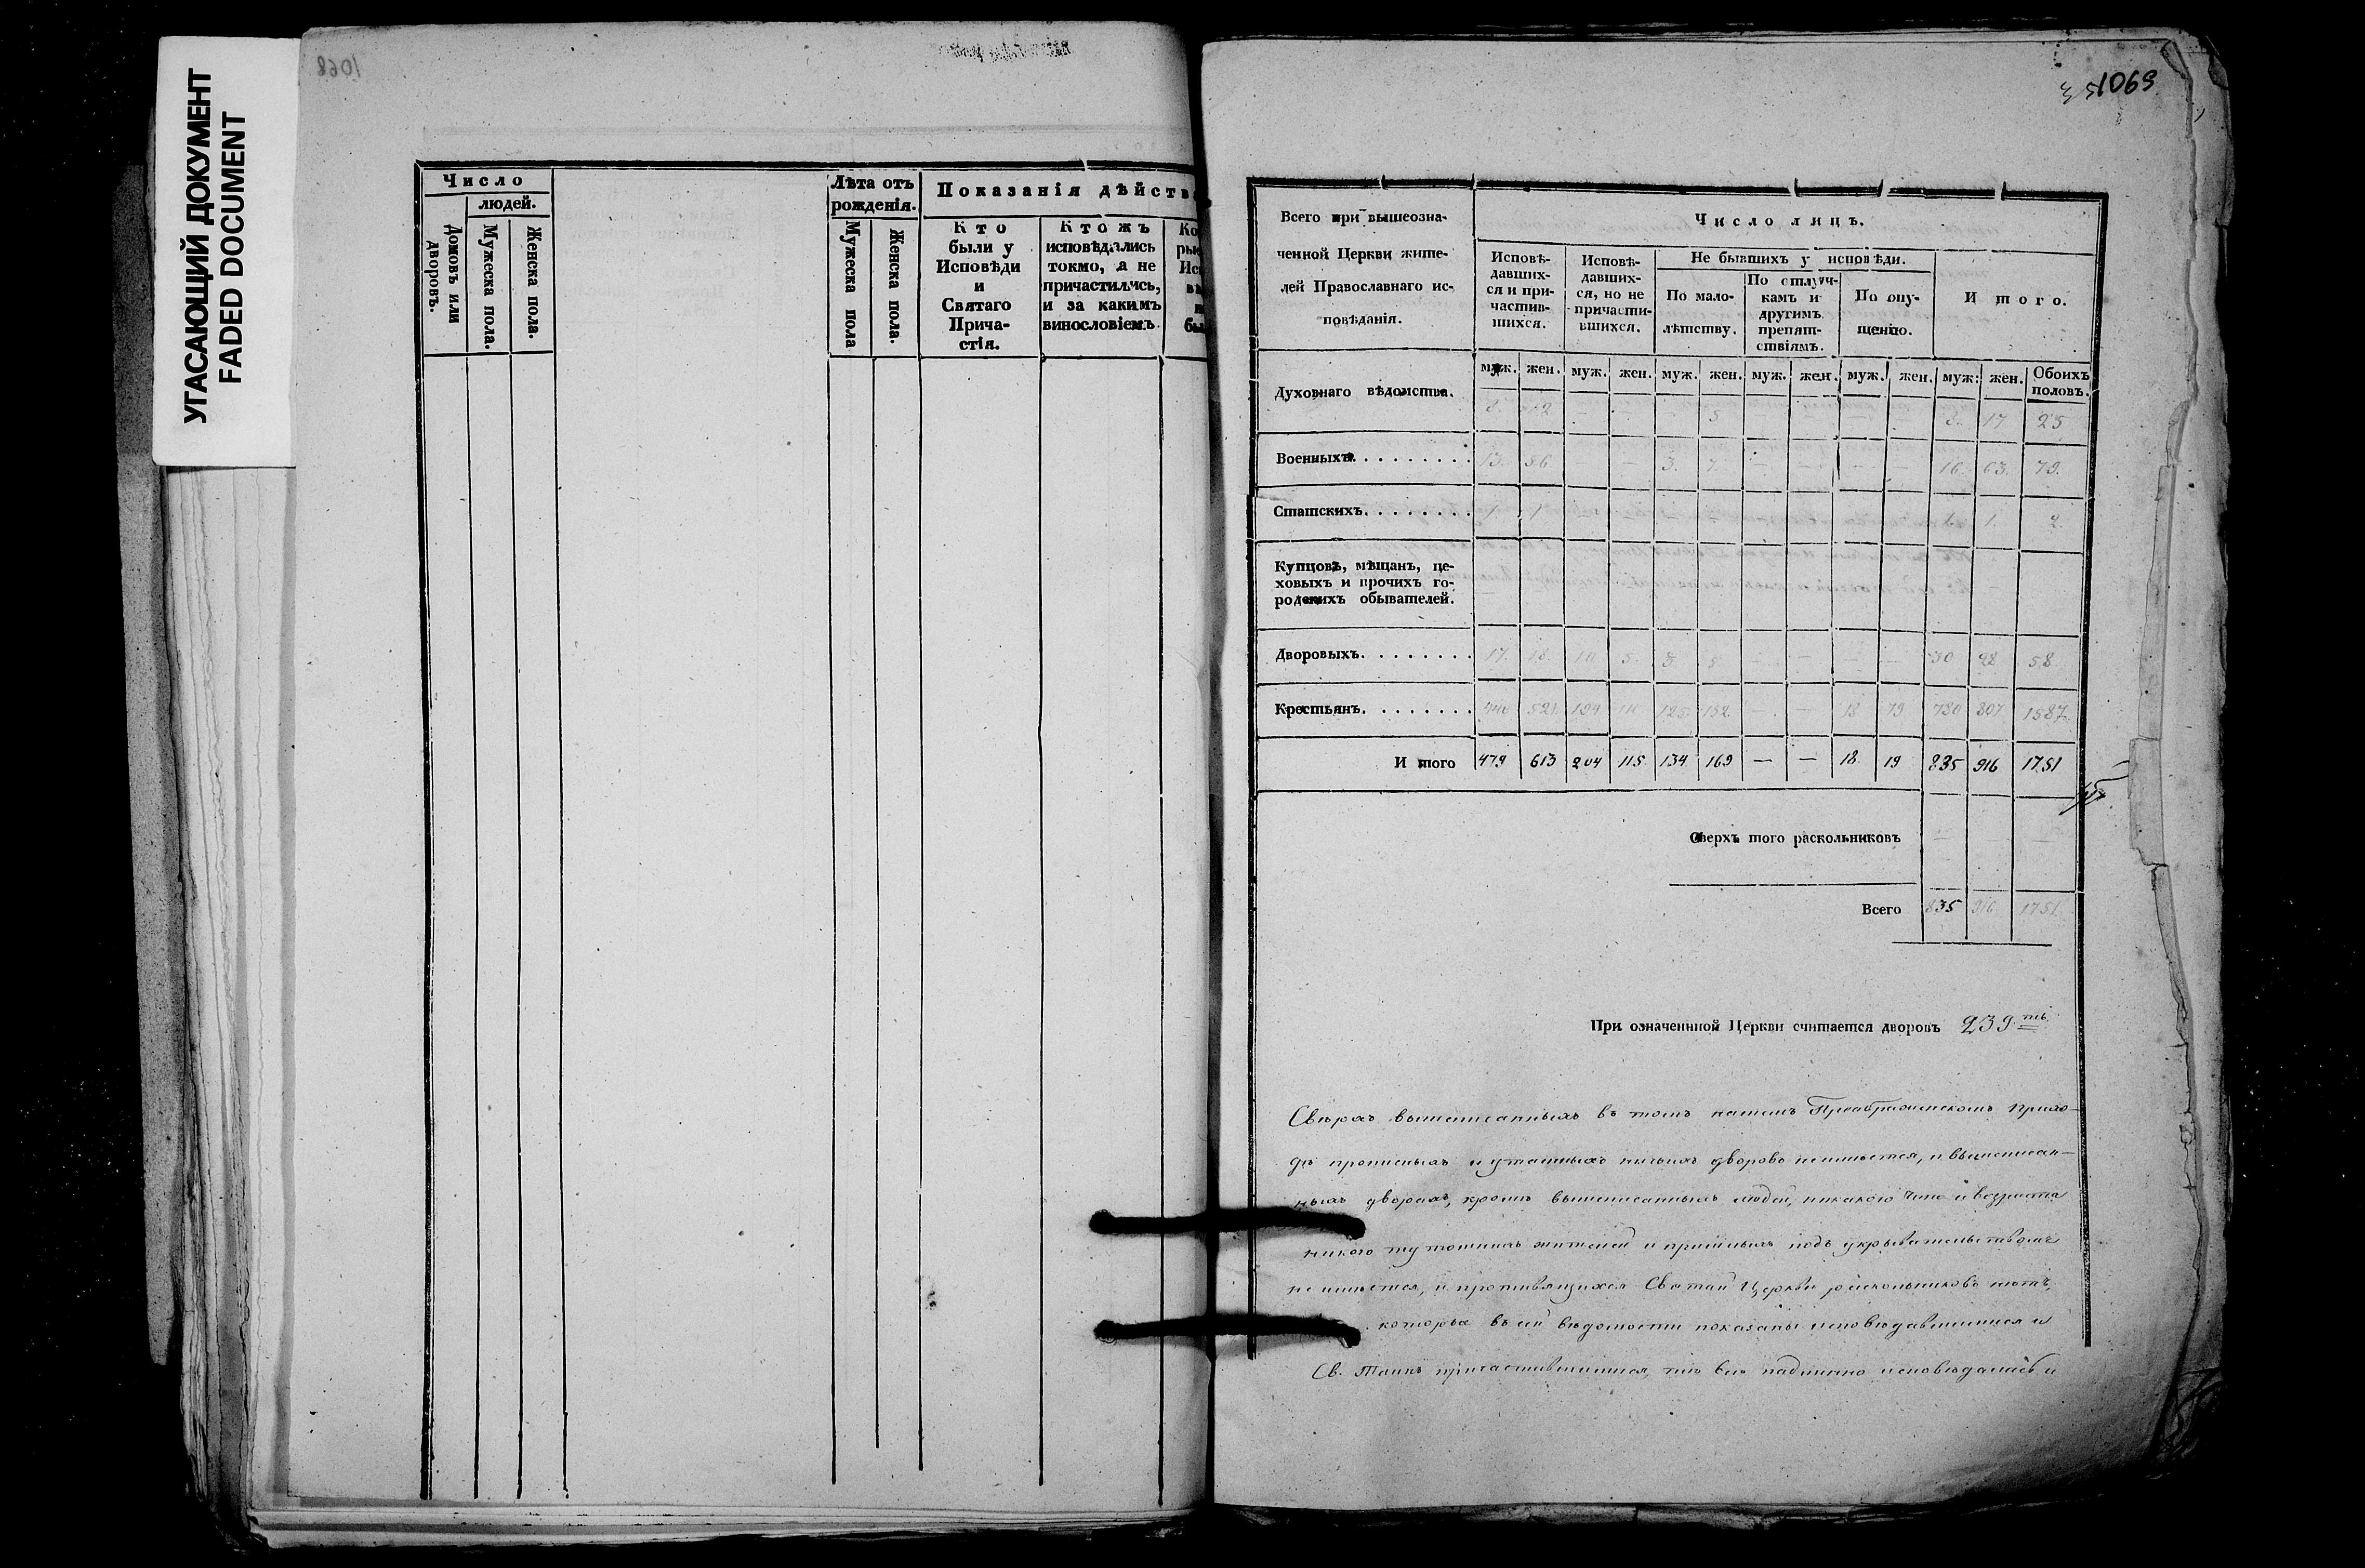 УГАСАЮЩИЙ ДОКУМЕНТ
FADED DOCUMENT
1068
Число
людей.
Домовъ или дворовъ.
Мужеска пола.
Женска пола.
Лѣта отъ рожденія.
Мужеска пола
Женска пола.
Показанія дѣйства
Кто
были у
Исповѣди
и
Святаго
Прича-
стія.
Ктожъ
исповѣдались
токмо, а не
причастились,
и за какимъ
винословіемъ.
1069
Всего при вышеозна-
ченной Церкви жите-
лей Православнаго ис-
повѣданія.
Число лицъ.
Исповѣ-
давших-
ся и при-
частив-
шихся.
Исповѣ-
давших-
ся, но не
причасти-
вшихся.
Не бывшихъ у исповѣди.
По мало-
лѣтству.
По отлуч-
камъ и
другимъ
препят-
ствіямъ.
По опу-
щенію.
Итого.
муж. жен. муж. жен. муж. жен. муж. жен. муж. жен. муж. жен. Обоихъ половъ.
Духовнаго вѣдомства. 8. 12 — 5 — 8. 17 25
Военныхъ. 13. 56 — — 3. 7. — — — — 16. 63. 79.
Статскихъ. 1. 1 1. 1. 2.
Купцовъ, мѣщанъ, це-
ховыхъ и прочихъ го-
родскихъ обывателей.
Дворовыхъ. 17. 18. 5. 5 — — — — 30 28 58
Крестьянъ. 440 521 194 110 125 152 — — 18 19 780 807 1587
И того 479 613 204 115 134 169 — — 18 19 835 916 1751
Сверхъ того раскольниковъ — — —
Всего 835 916 1751
При означенной Церкви считается дворовъ 239ть.
Сверхъ вышеписанныхъ въ томъ нашемъ Преображенскомъ прихо-
дѣ прописныхъ и утаенныхъ ничьихъ дворовъ неимѣется, и вышеписан-
ныхъ дворахъ, кромѣ вышеписанныхъ людей, никакого чина и возраста
никого тутошнихъ жителей и пришлыхъ подъ укрывательствомъ
не имѣется, и противящихся Святой Церкви раскольниковъ нѣтъ,
которые въ сей вѣдомости показаны исповѣдавшимися и
Св. Таинъ причастившимися, тѣ всѣ исповѣдались и